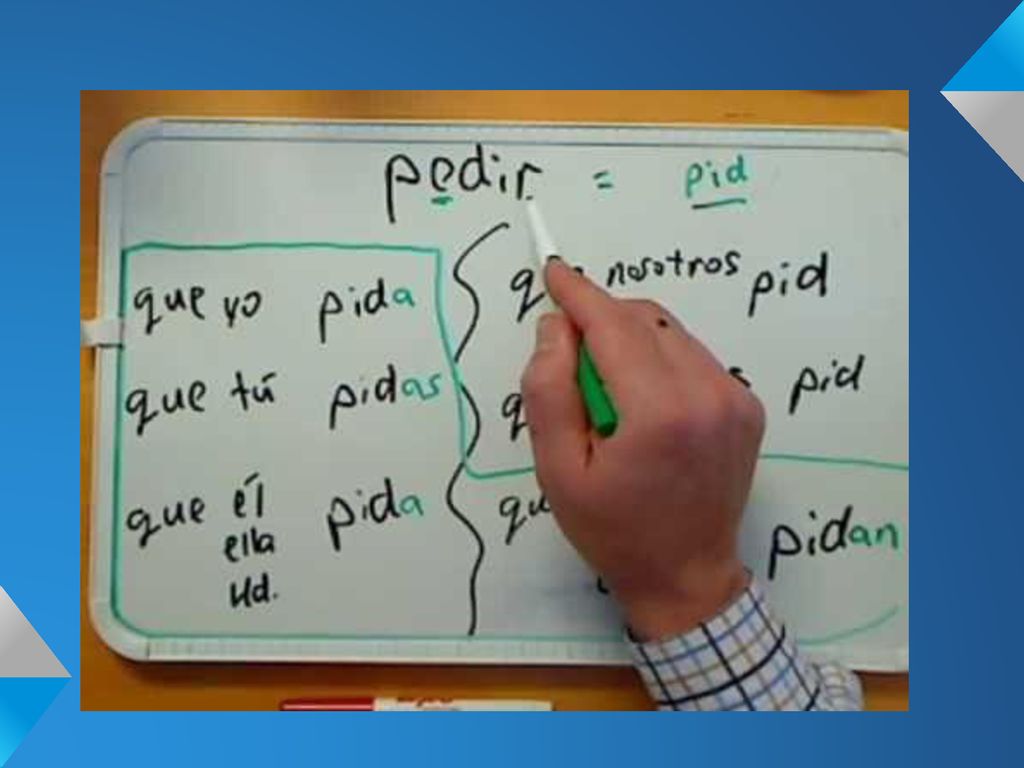 pedir = pid
que yo pida
que tú pidas
que él pida
ella
Ud.
nosotros pid
pid
pidan